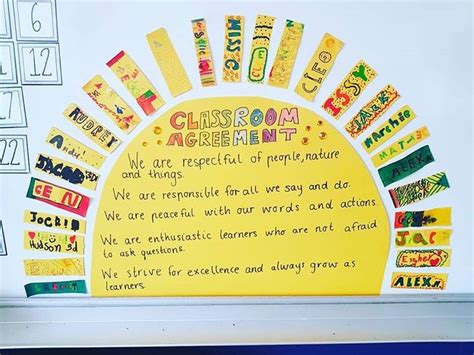 6
12
22
CLASSROOM
AGREEMENT
We are respectful of people, nature
and things.
We are responsible for all we say and do.
We are peaceful with our words and actions.
We are enthusiastic learners who are not afraid
to ask questions.
We strive for excellence and always grow as
learners.
AUDREY
Andre
JACOB
Hudson
MISS G
CLEO
Jack
Archie
ALEX
Jac
ALEX